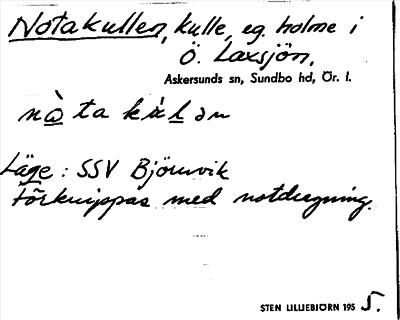 Notakullen, kulle, eg. holme i
Ö. Laxsjön.
Askersunds sn, Sundbo hd, Ör. l.
Läge: SSV Björnvik
Förknippas med notdragning.
STEN LILLIEBJÖRN 1955.